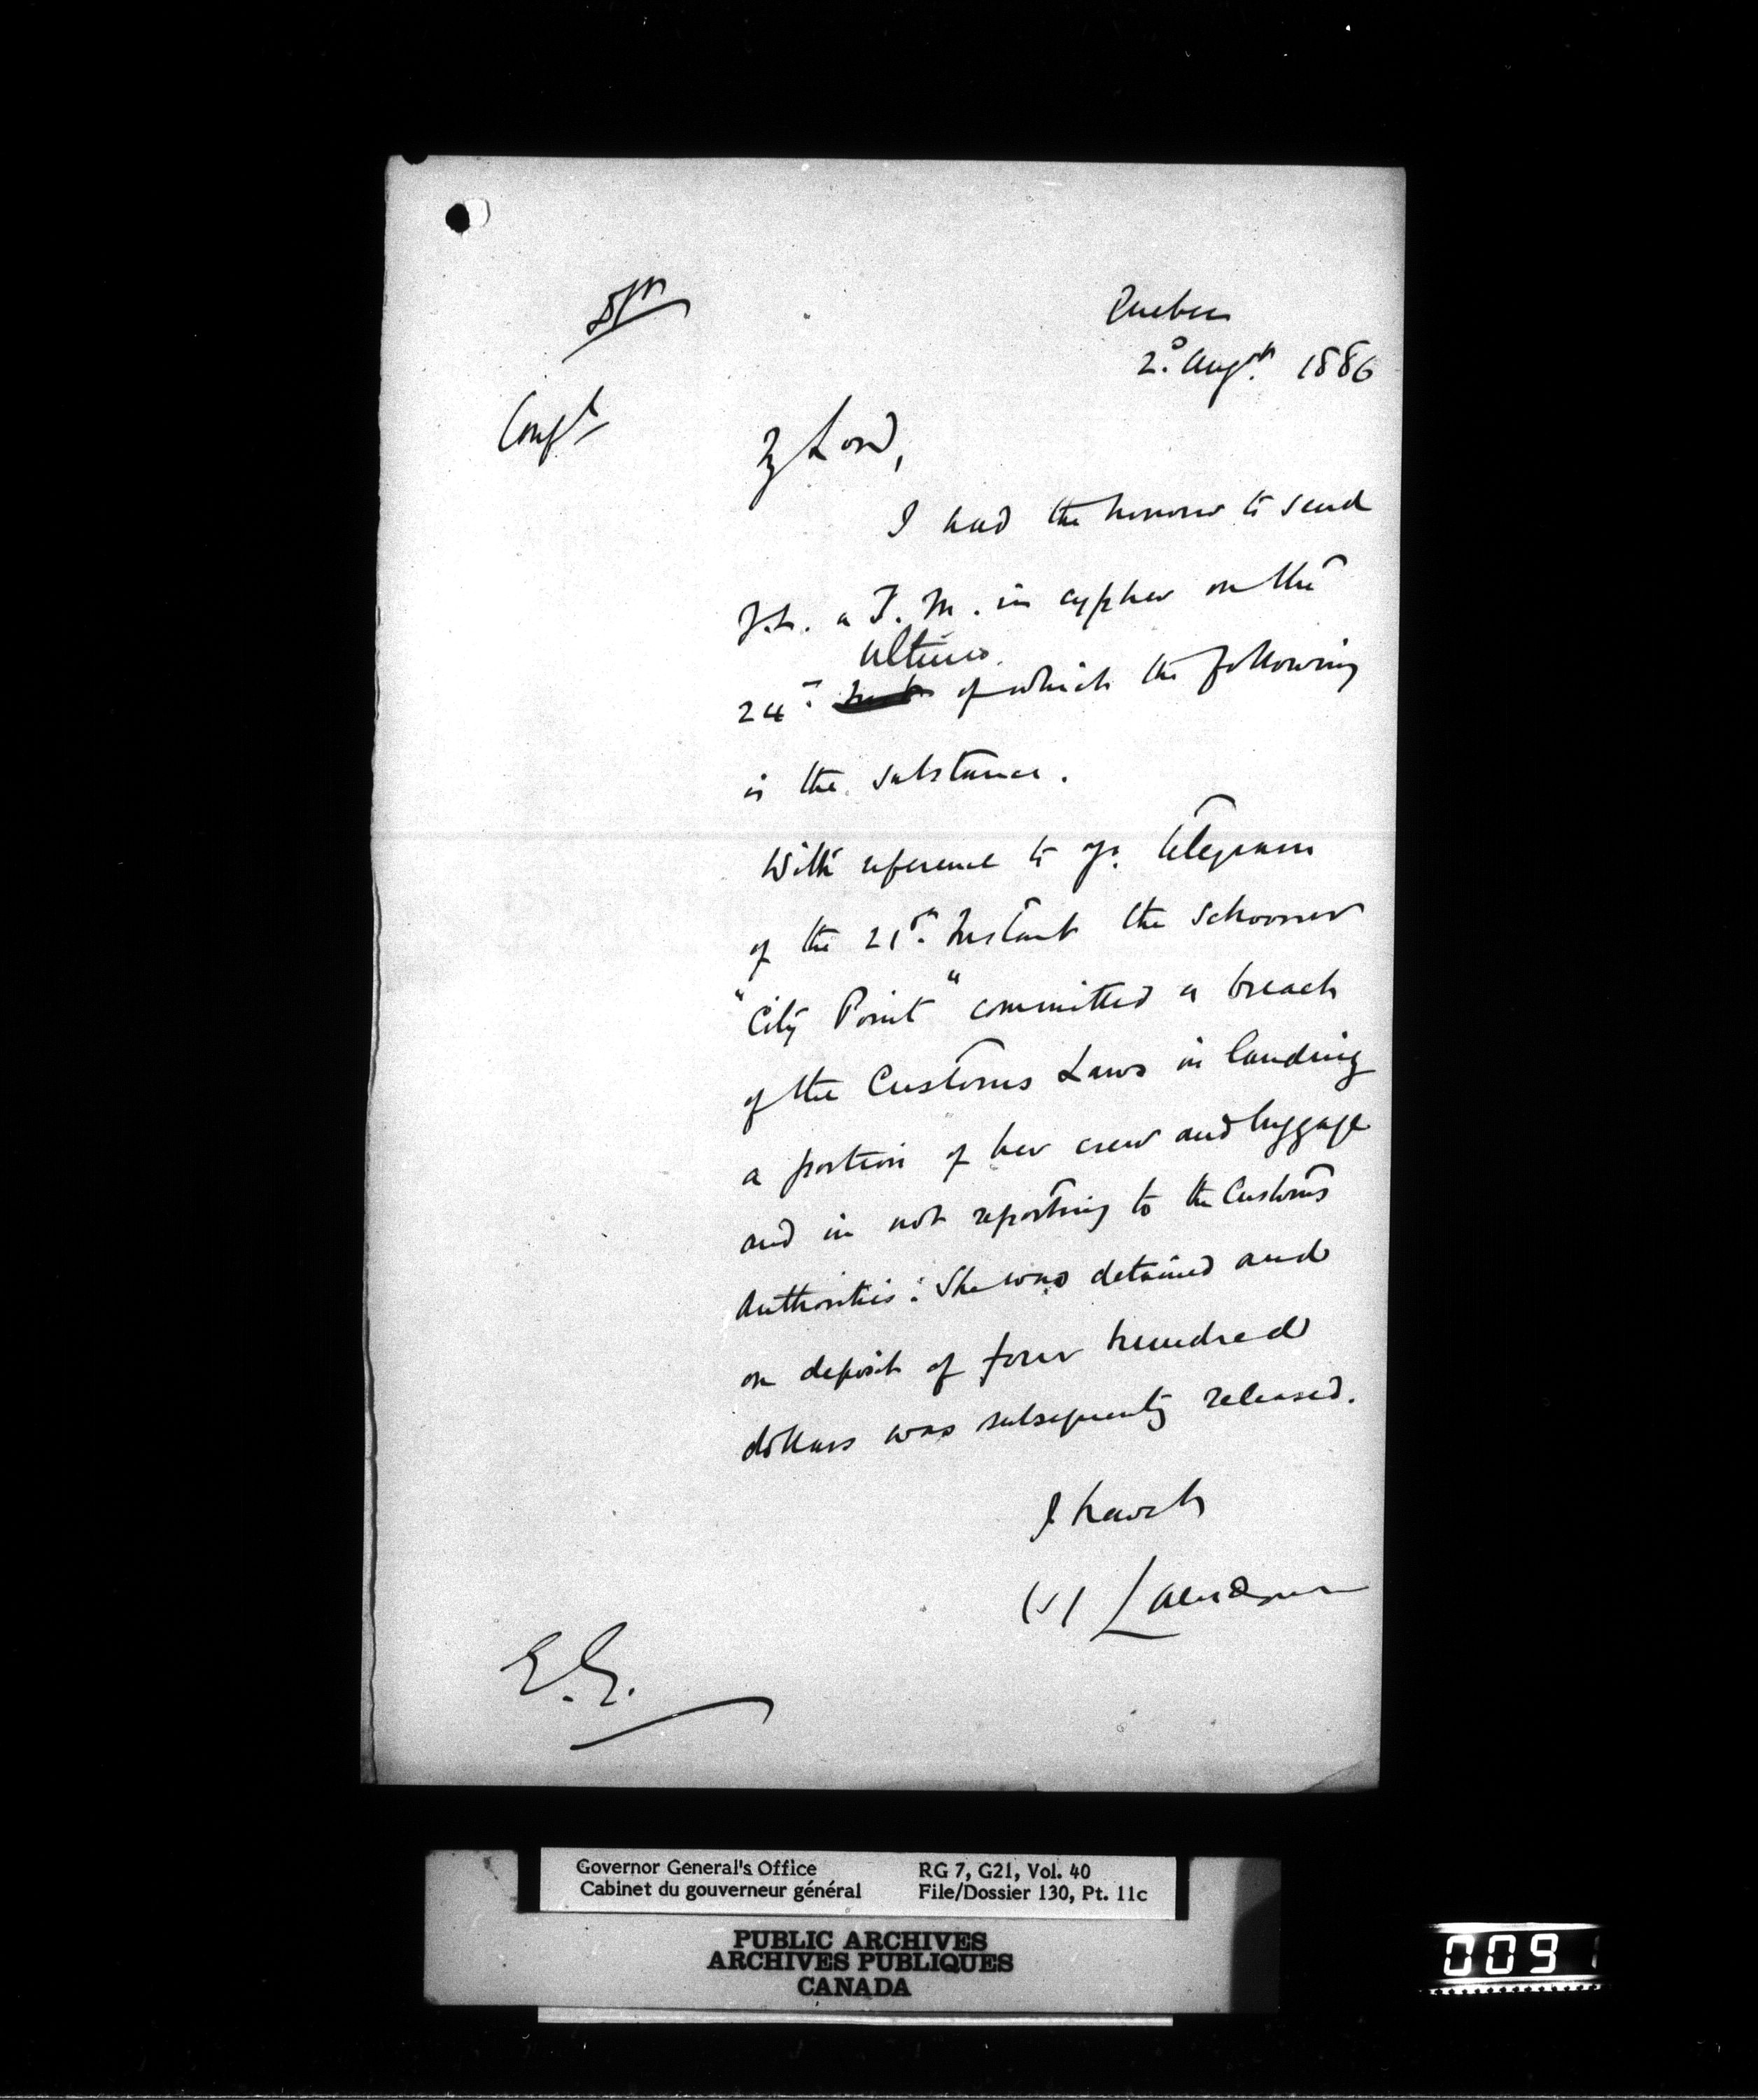 Quebec
2d Augst. 1886
Confl
My Lord,
I had the honour to send
Y.L. a T.M. in cypher on the
ultimo.
24th Inst of which the following
is the substance.
With reference to yr. telegram
of the 21st. Instant the schooner
"City Point" committed a breach
of the Customs Laws in landing
a portion of her crew and luggage
and in not reporting to the Customs
Authorities: She was detained and
on deposit of four hundred
dollars was subsequently released.
I have &c
(s) Lansdowne
E.G.
Governor General's Office
Cabinet du gouverneur général
RG 7, G21, Vol. 40
File/Dossier 130, Pt. 11c
PUBLIC ARCHIVES
ARCHIVES PUBLIQUES
CANADA
009